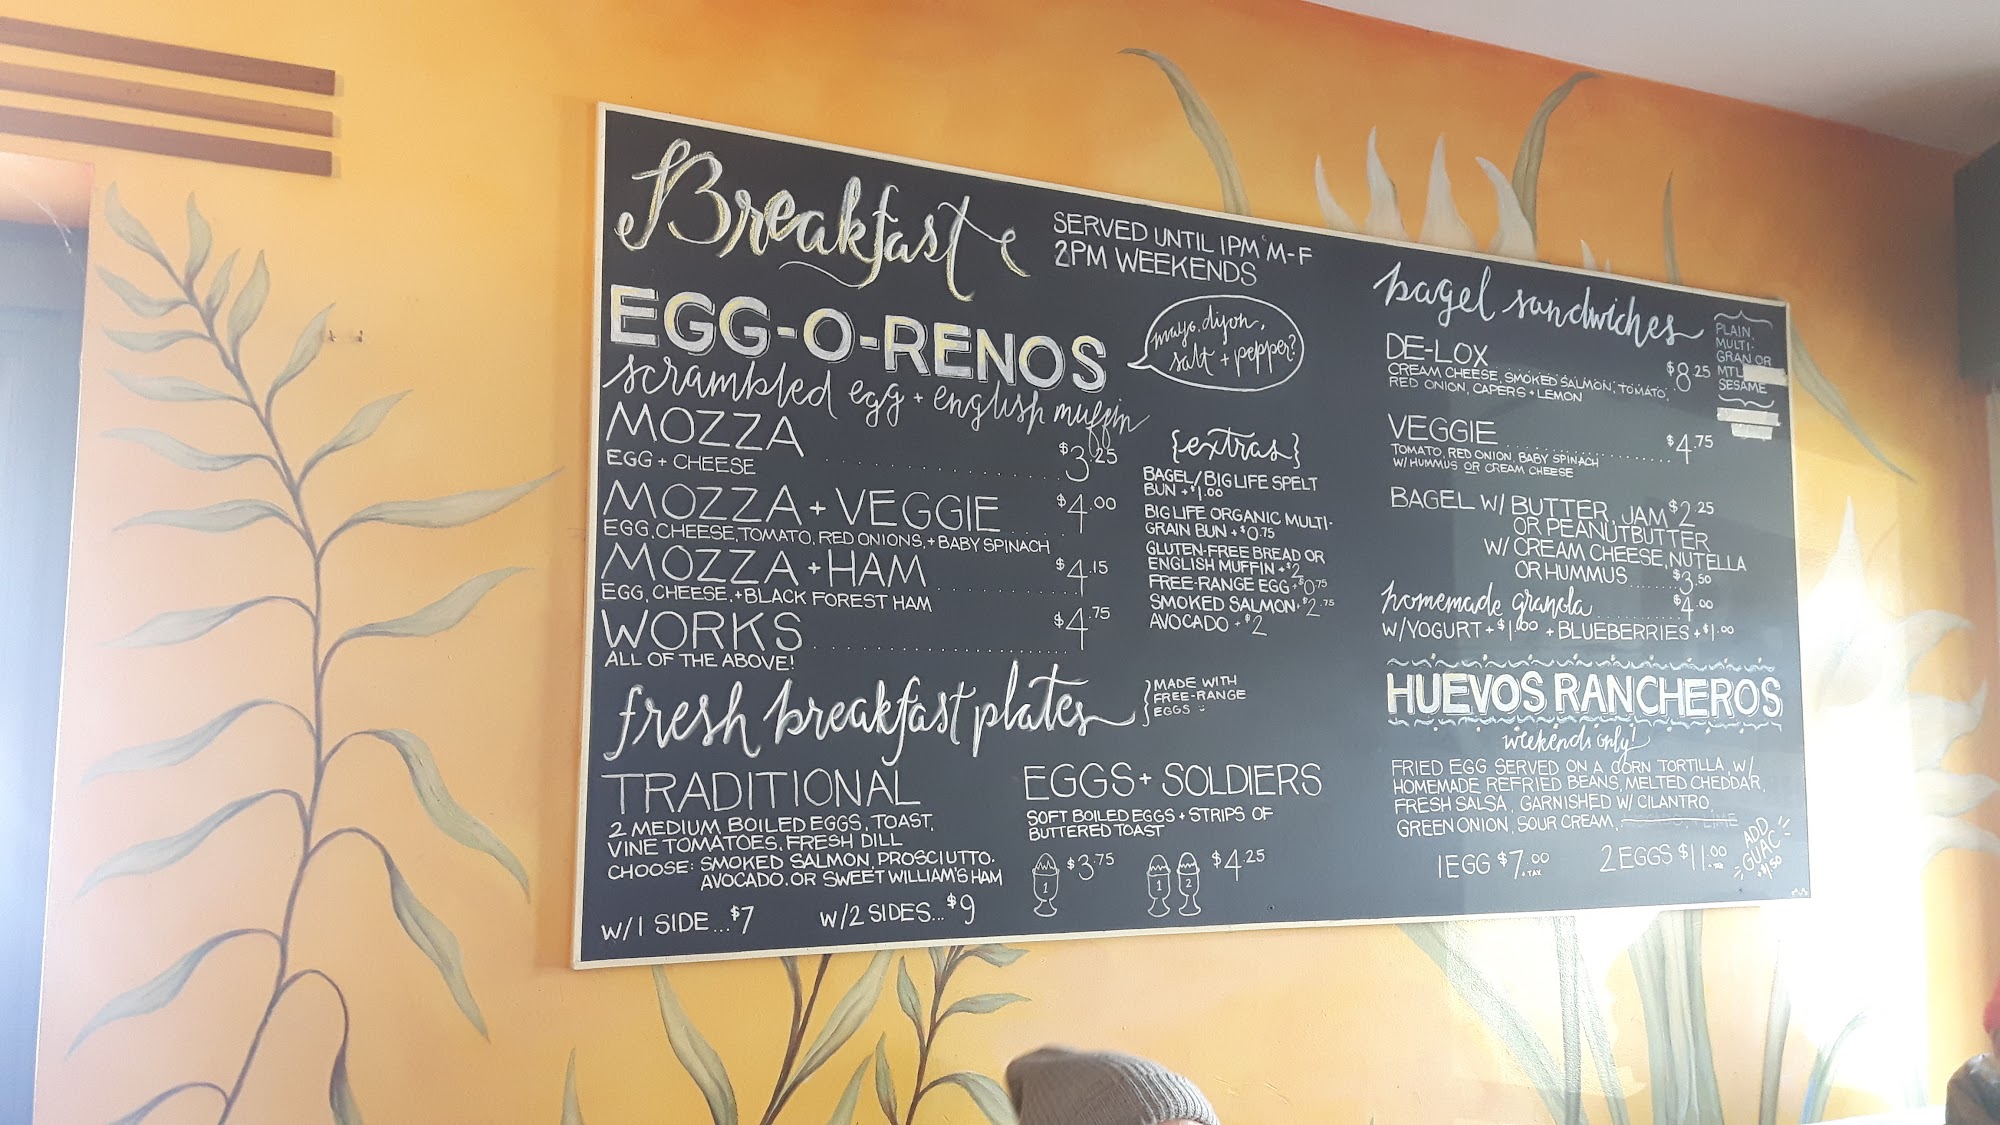 Breakfast
SERVED UNTIL 1PM M-F
2PM WEEKENDS
EGG-O-RENOS
mayo, dijon,
salt + pepper?
scrambled egg + english muffin
MOZZA $3.25
EGG + CHEESE
MOZZA + VEGGIE $4.00
EGG, CHEESE, TOMATO, RED ONIONS, + BABY SPINACH
MOZZA + HAM $4.15
EGG, CHEESE, + BLACK FOREST HAM
WORKS $4.75
ALL OF THE ABOVE!
{extras}
BAGEL/BIG LIFE SPELT
BUN + $1.00
BIG LIFE ORGANIC MULTI-
GRAIN BUN + $0.75
GLUTEN-FREE BREAD OR
ENGLISH MUFFIN + $2
FREE-RANGE EGG + $0.75
SMOKED SALMON + $2.75
AVOCADO + $2
fresh breakfast plates
MADE WITH
FREE-RANGE
EGGS
TRADITIONAL
2 MEDIUM BOILED EGGS, TOAST,
VINE TOMATOES, FRESH DILL
CHOOSE: SMOKED SALMON, PROSCIUTTO,
AVOCADO, OR SWEET WILLIAM'S HAM
W/1 SIDE...$7 W/2 SIDES...$9
EGGS + SOLDIERS
SOFT BOILED EGGS + STRIPS OF
BUTTERED TOAST
1 $3.75 1 2 $4.25
bagel sandwiches
PLAIN
MULTI-
GRAN OR
MTL
SESAME
DE-LOX $8.25
CREAM CHEESE, SMOKED SALMON, TOMATO,
RED ONION, CAPERS + LEMON
VEGGIE $4.75
TOMATO, RED ONION, BABY SPINACH
W/ HUMMUS OR CREAM CHEESE
BAGEL W/ BUTTER, JAM $2.25
OR PEANUTBUTTER
W/ CREAM CHEESE, NUTELLA
OR HUMMUS $3.50
homemade granola $4.00
W/YOGURT + $1.00 + BLUEBERRIES + $1.00
HUEVOS RANCHEROS
weekends only!
FRIED EGG SERVED ON A CORN TORTILLA, W/
HOMEMADE REFRIED BEANS, MELTED CHEDDAR,
FRESH SALSA, GARNISHED W/ CILANTRO,
GREEN ONION, SOUR CREAM,
1 EGG $7.00 +TAX 2 EGGS $11.00
ADD
GUAC
$1.50